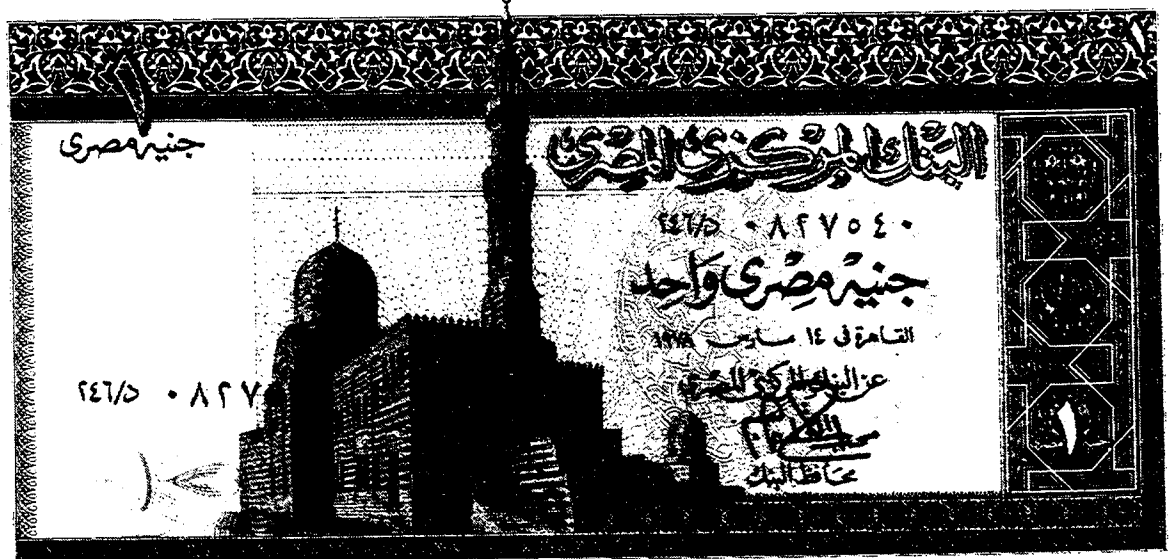 ١
١
جنيه مصرى
البنك المركزى المصرى
٠٨٢٧٥٤٠ د/٢٤٦
جنيه مصرى واحد
القاهرة فى ١٤ مارس ١٩٧٨
عن البنك المركزى المصرى
محافظ البنك
٠٨٢٧ د/٢٤٦
١